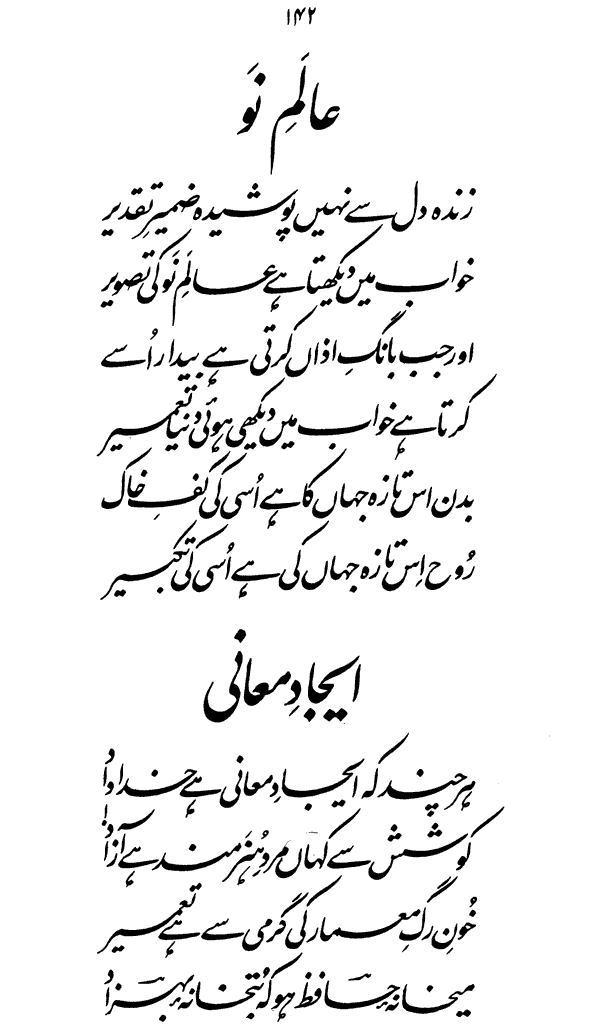 ۱۴۲
عالَمِ نَو
زندہ دل سے نہیں پوشیدہ ضمیرِ تقدیر
خواب میں دیکھتا ہے عالَمِ نَو کی تصویر
اور جب بانگِ اذاں کرتی ہے بیدار اُسے
کرتا ہے خواب میں دیکھی ہوئی دنیا تعمیر
بدن اس تازہ جہاں کا ہے اُسی کی کفِ خاک
رُوح اِس تازہ جہاں کی ہے اُسی کی تکبیر
ایجادِ معانی
ہر چند کہ ایجادِ معانی ہے خداداد
کوشش سے کہاں مردِ ہُنَرمند ہے آزاد!
خُونِ رگِ معمار کی گرمی سے ہے تعمیر
میخانۂ حافظ ہو کہ بُتخانۂ بہزاد